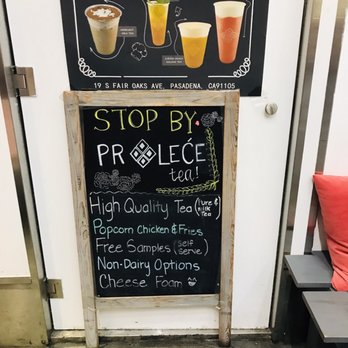 19 S FAIR OAKS AVE, PASADENA, CA91105
STOP BY
PROLEĆE
tea!
High Quality Tea (Pure & Milk Tea)
Popcorn Chicken & Fries
Free Samples (Self Serve)
Non-Dairy Options
Cheese Foam